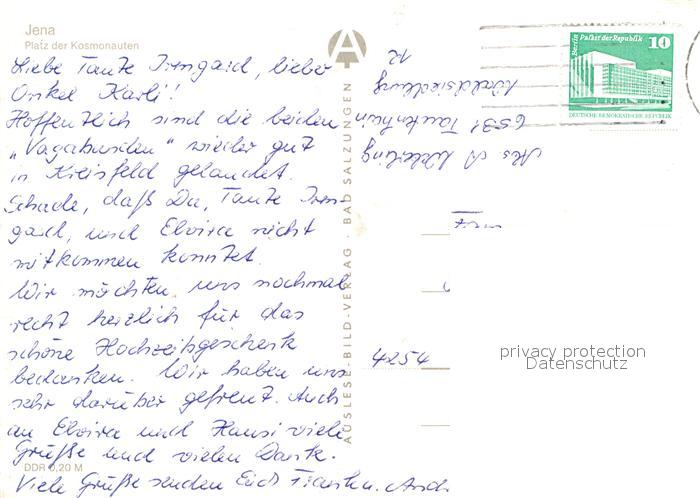 Jena
Platz der Kosmonauten
Liebe Tante Irmgard, lieber
Onkel Karli!
Hoffentlich sind die beiden
„Vagabunden" wieder gut
in Kreisfeld gelandet.
Schade, daß Du, Tante Irm-
gard, und Elvira nicht
mitkommen konntet.
Wir möchten uns nochmal
recht herzlich für das
schöne Hochzeitsgeschenk
bedanken. Wir haben uns
sehr darüber gefreut. Auch
an Elvira und Hansi viele
Grüße und vielen Dank.
Viele Grüße senden Euch
DDR 0,20 M
AUSLESE-BILD-VERLAG · BAD SALZUNGEN
Berlin Palast der Republik
10
DEUTSCHE DEMOKRATISCHE REPUBLIK
Abs
6531
Waldsiedlung
12
4254
privacy protection
Datenschutz